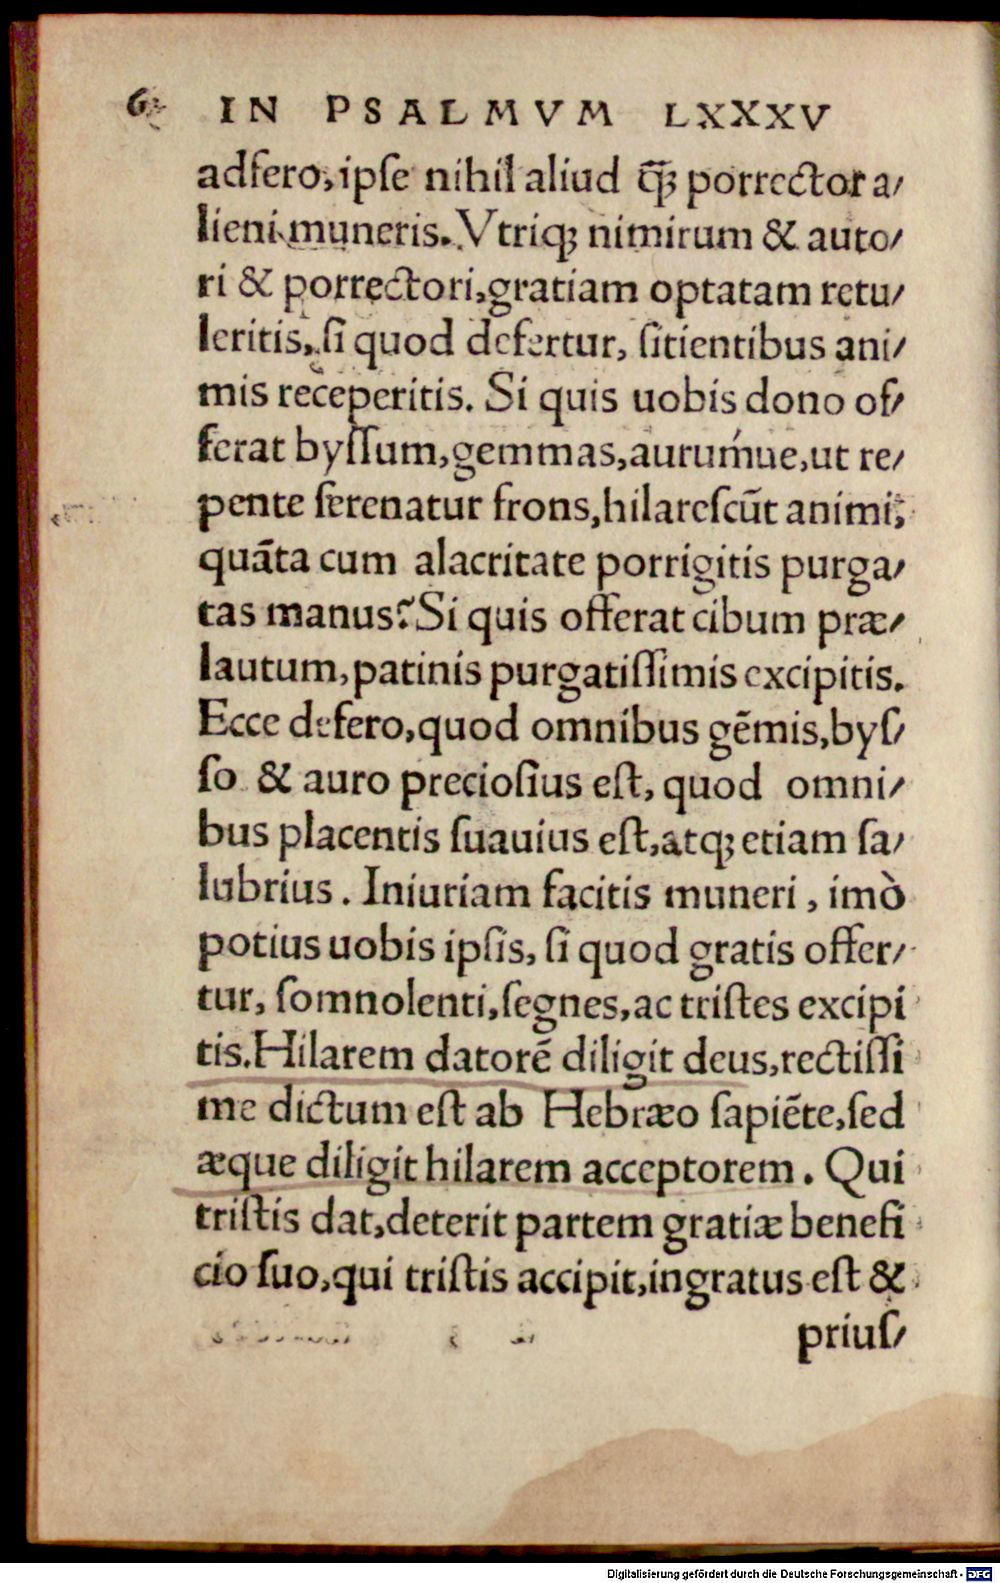 6 IN PSALMVM LXXXV
adfero, ipſe nihil aliud q̃ꝫ porrector a/
lieni muneris. Vtriqꝫ nimirum & auto/
ri & porrectori, gratiam optatam retu/
leritis, ſi quod defertur, ſitientibus ani/
mis receperitis. Si quis uobis dono of/
ferat byſſum, gemmas, auruḿue, ut re/
pente ſerenatur frons, hilareſcūt animi,
quāta cum alacritate porrigitis purga/
tas manus? Si quis offerat cibum præ/
lautum, patinis purgatiſſimis excipitis.
Ecce defero, quod omnibus gēmis, byſ/
ſo & auro precioſius eſt, quod omni/
bus placentis ſuauius eſt, atqꝫ etiam ſa/
lubrius. Iniuriam facitis muneri, imò
potius uobis ipſis, ſi quod gratis offer/
tur, ſomnolenti, ſegnes, ac triſtes excipi
tis. Hilarem datorē diligit deus, rectiſſi
me dictum eſt ab Hebræo ſapiēte, ſed
æque diligit hilarem acceptorem. Qui
triſtis dat, deterit partem gratiæ benefi
cio ſuo, qui triſtis accipit, ingratus eſt &
priuſ/
Digitalisierung gefördert durch die Deutsche Forschungsgemeinschaft - DFG